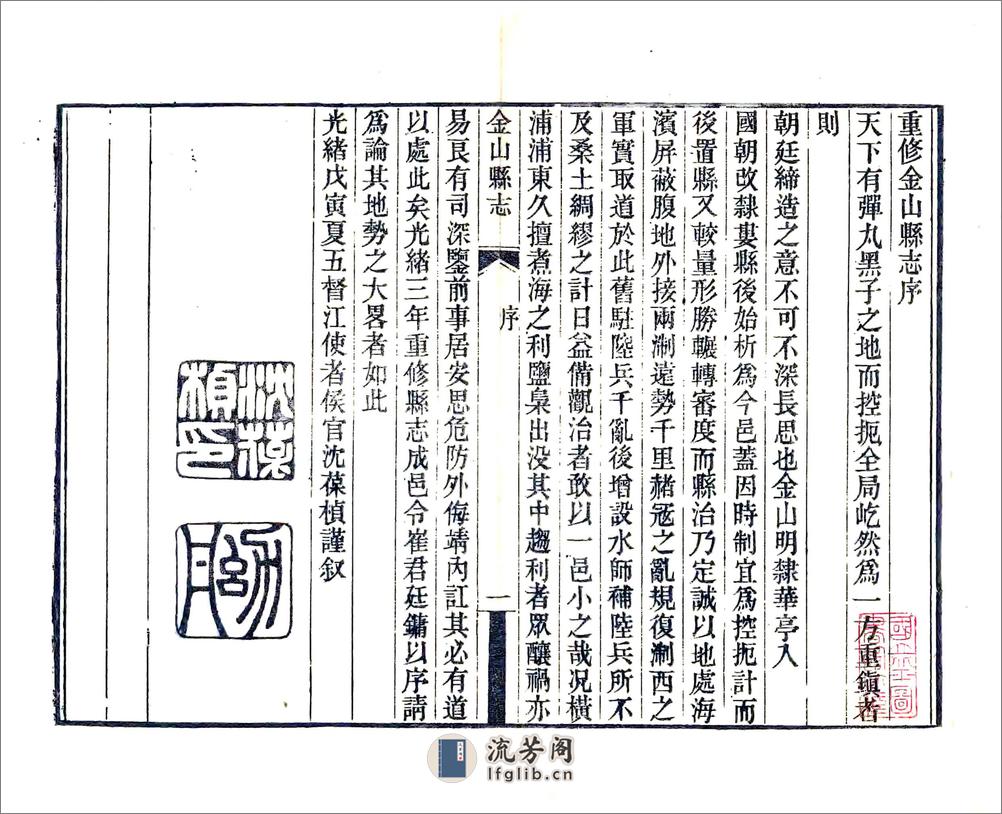 重修金山縣志序
天下有彈丸黑子之地而控扼全局屹然爲一方重鎭者
則
朝廷締造之意不可不深長思也金山明隸華亭入
國朝改隸婁縣後始析爲今邑蓋因時制宜爲控扼計而
後置縣又較量形勝輾轉審度而縣治乃定誠以地處海
濱屏蔽腹地外接兩淛遠勢千里赭寇之亂規復淛西之
軍實取道於此舊駐陸兵千亂後增設水師補陸兵所不
及桑土綢繆之計日益備觀治者敢以一邑小之哉况橫
浦浦東久擅煮海之利鹽梟出没其中趨利者眾釀禍亦
金山縣志
序
一
易良有司深鑒前事居安思危防外侮靖內訌其必有道
以處此矣光緒三年重修縣志成邑令崔君廷鏞以序請
爲論其地勢之大畧者如此
光緒戊寅夏五督江使者侯官沈葆楨謹叙
沈葆
楨印
流芳阁
lfglib.cn